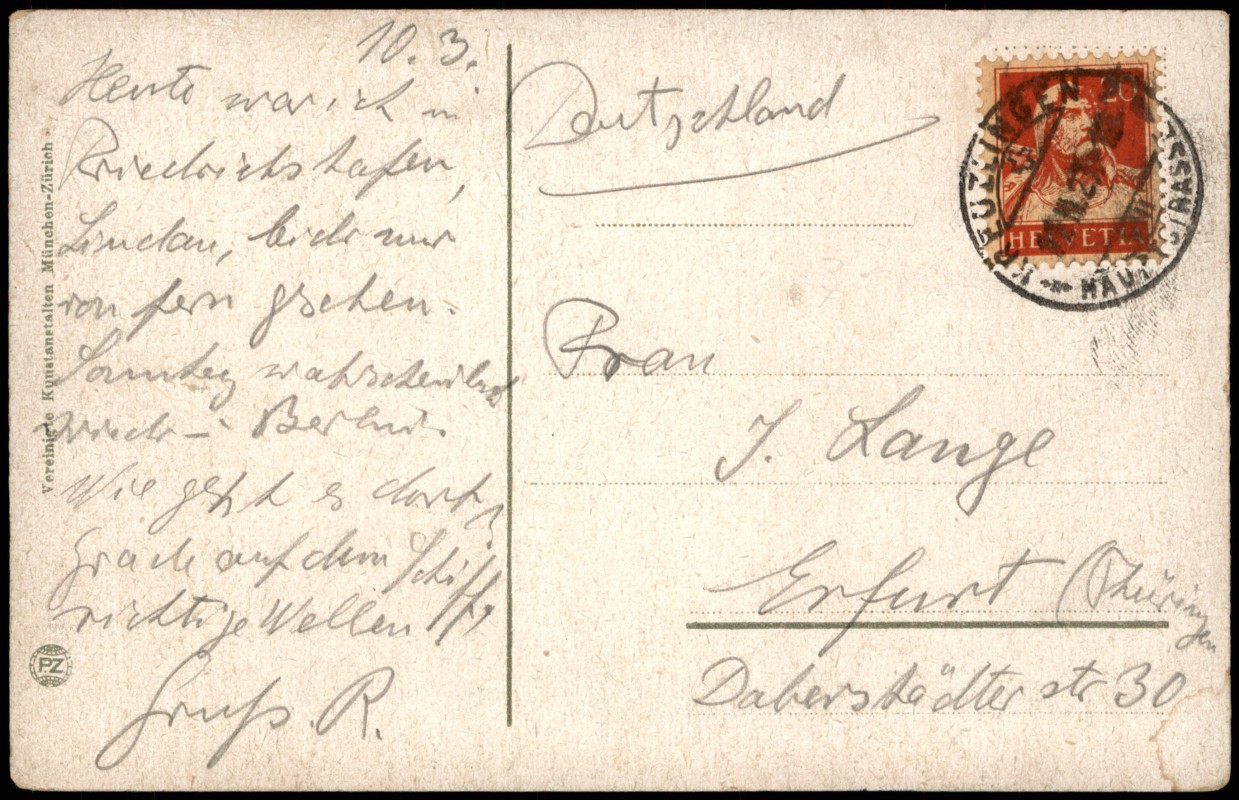 10.3.
Heute war ich in
Friedrichshafen,
Lindau, beide nur
von fern gesehen.
Sonntag wahrscheinlich
wieder Berlin.
Wie geht es dort?
Grade auf dem Schiff
richtige Wellen!
Gruß. R.
Vereinigte Kunstanstalten München-Zürich
PZ
Deutschland
20
HELVETIA
KREUZLINGEN
HAUPTSTRASSE
Frau
J. Lange
Erfurt (Thüringen
Daberstädter str 30